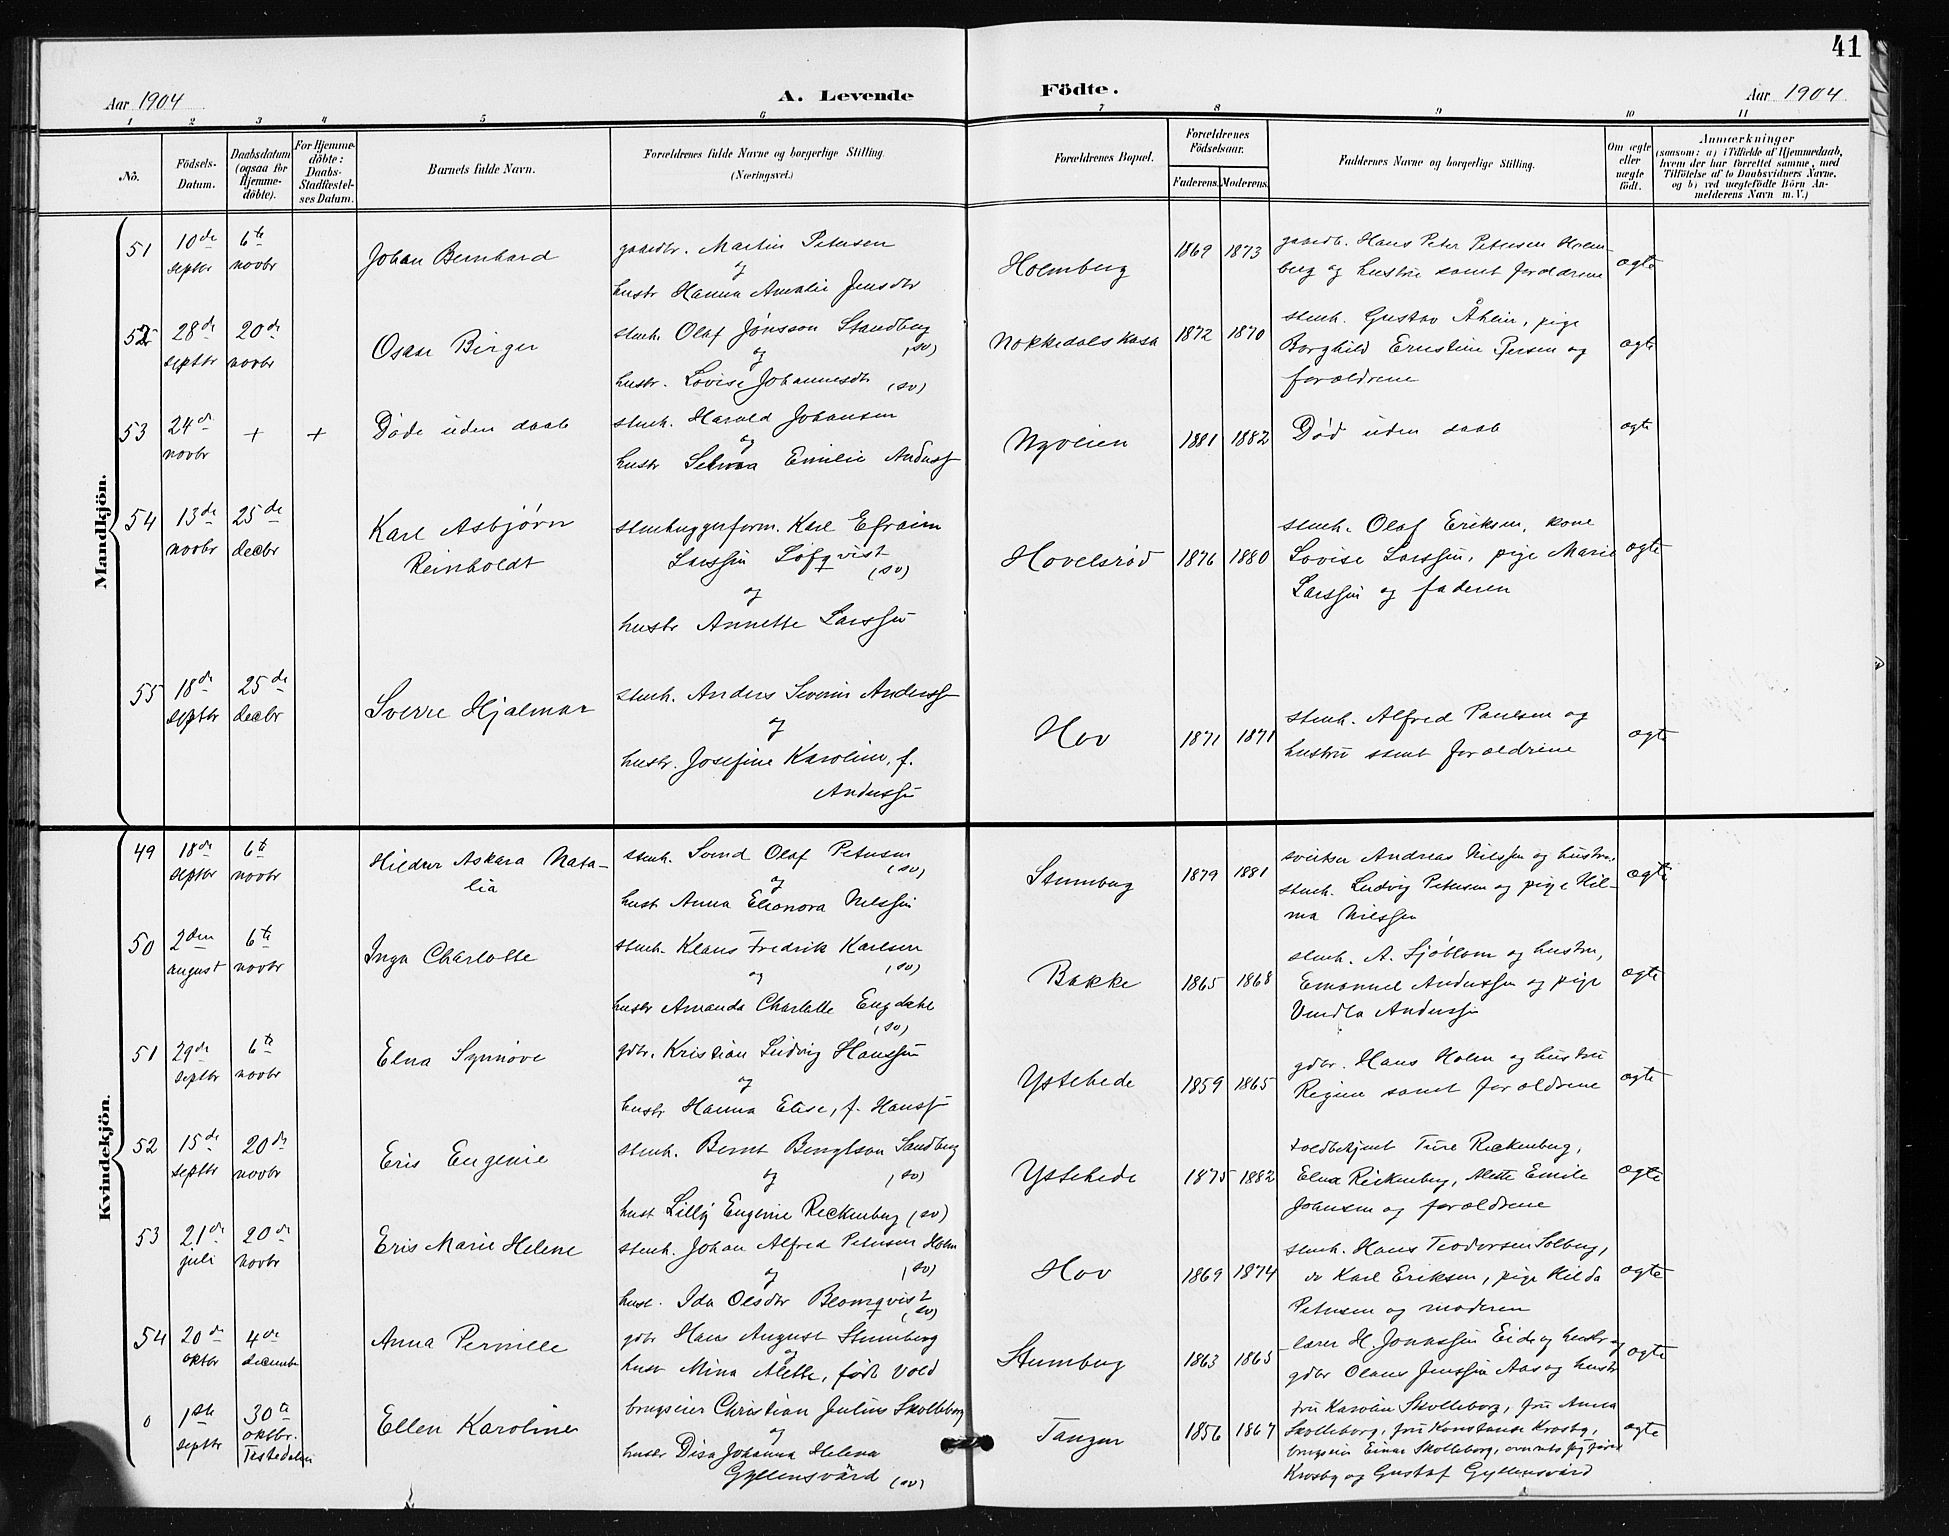 41
Aar 1904 A. Levende Födte. Aar 1904
1 2 3 4 5 6 7 8 9 10 11
No.
Födsels-
Datum.
Daabsdatum
(ogsaa for
Hjemme-
döbte).
For Hjemme-
döbte:
Daabs-
Stadfæstel-
ses Datum.
Barnets fulde Navn.
Forældrenes fulde Navne og borgerlige Stilling.
(Næringsvei.)
Forældrenes Bopæl.
Forældrenes
Födselsaar.
Faderens. Moderens.
Faddernes Navne og borgerlige Stilling.
Om ægte
eller
uægte
födt.
Anmærkninger
(saasom: a) i Tilfælde af Hjemmedaab,
hvem der har forrettet samme, med
Tilföielse af to Daabsvidners Navne,
og b) ved uægtefödte Börn An-
melderens Navn m. V.)
Mandkjön.
51 10de septbr 6te novbr
Johan Bernhard
gaardbr. Martin Petersen
og
hustr Hanna Amalie Jensdtr
Holmberg 1869 1873
gaardb. Hans Peter Petersen Holm-
berg og hustru samt forældrene
ægte
52 28de septbr 20de novbr
Oskar Birger
stenh. Olaf Jönsson Strandberg
og (sv)
hustr. Lovise Johannesdtr (sv)
Nokkedalskasa 1872 1870
stenh. Gustav Åhlin, pige
Borghild Ernstine Persen og
forældrene
ægte
53 24de novbr + +
Døde uden daab
stenh. Harald Johansen
og
hustr Selma Emilie Anderss
Nyveien 1881 1882
Død uden daab
ægte
54 13de novbr 25de decbr
Karl Asbjørn
Reinholdt
stenhuggerform. Karl Efraim
Larssen Löfqvist
(sv)
og
hustr Annette Larssen
Hovelsrød 1876 1880
stenh. Olaf Eriksen, kone
Lovise Larssen, pige Marie
Larssen og faderen
ægte
55 18de septbr 25de decbr
Sverre Hjalmar
stenh. Anders Severin Anderssen
og
hustr. Josefine Karoline, f.
Anderssen
Hov 1871 1871
stenh. Alfred Paulsen og
hustru samt forældrene
ægte
Kvindekjön.
49 18de septbr 6te novbr
Hildur Askara Nata-
lia
stenh. Svend Olaf Petersen
og (sv)
hust Anna Elionora Nilssen
Stumberg 1879 1881
sveitser Andreas Nilssen og hustru,
stenh. Ludvig Petersen og pige Hil-
ma Nilssen
ægte
50 2den august 6te novbr
Inga Charlotte
stenh. Klaus Fredrik Karlsen
og (sv)
hustr Amanda Charlotte Engdahl
(sv)
Bakke 1865 1868
stenh. A. Sjöblom og hustru,
Emanuel Anderssen og pige
Vendla Anderssen
ægte
51 29de septbr 6te novbr
Elna Synnøve
gdbr. Kristian Ludvig Hanssen
og
hustr Hanna Elise, f. Hanss
Ystehede 1859 1865
gdbr. Hans Holm og hustru
Regine samt forældrene
ægte
52 15de septbr 20de novbr
Eris Eugenie
stenh. Bernt Bengtson Sandberg
og (sv)
hust Lilly Eugenie Reckenberg (sv)
Ystehede 1875 1882
toldbetjent Ture Reckenberg,
Elna Reckenberg, Alette Emile
Johansen og forældrene
ægte
53 21de juli 20de novbr
Eris Marie Helene
stenh. Johan Alfred Petersen Holm
og (sv)
hust. Ida Olsdtr Blomqvist
(sv)
Hov 1869 1874
stenh. Hans Teodorsen Solberg,
do Karl Eriksen, pige Hilda
Petersen og moderen
ægte
54 20de oktbr 4de decembr
Anna Pernille
gdbr Hans August Stumberg
og
hustr Mina Alette, født Vold
Stumberg 1863 1865
lærer H. Jonassen Eide og hustr og
gdbr Olaus Jenssen Aas og hustr
ægte
0 1ste septbr 30te oktbr.
Tistedalen
Ellen Karoline
brugseier Christian Julius Skolleborg
og
hustr Disa Johanna Helena
Gyllensvärd (sv)
Tangen 1856 1867
fru Karoline Skolleborg, fru Anna
Skolleborg, fru Konstanse Krosby,
brugseier Einar Skolleborg,
Krosby og Gustaf Gyllensvärd
ægte